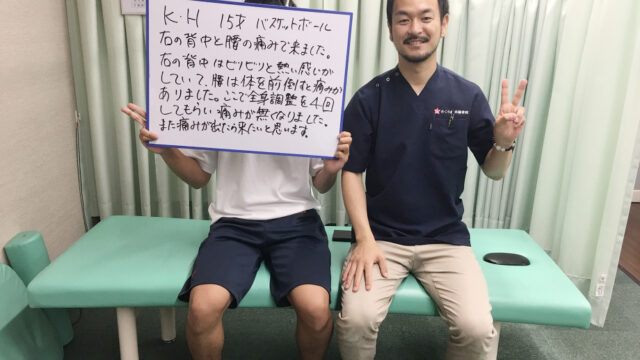 K.H 15才 バスケットボール
右の背中と腰の痛みで来ました。
右の背中はピリピリと熱い感じが
していて、腰は体を前倒すと痛みが
ありました。ここで全身調整を4回
してもらい痛みが無くなりました。
また痛みが出たら来たいと思います。